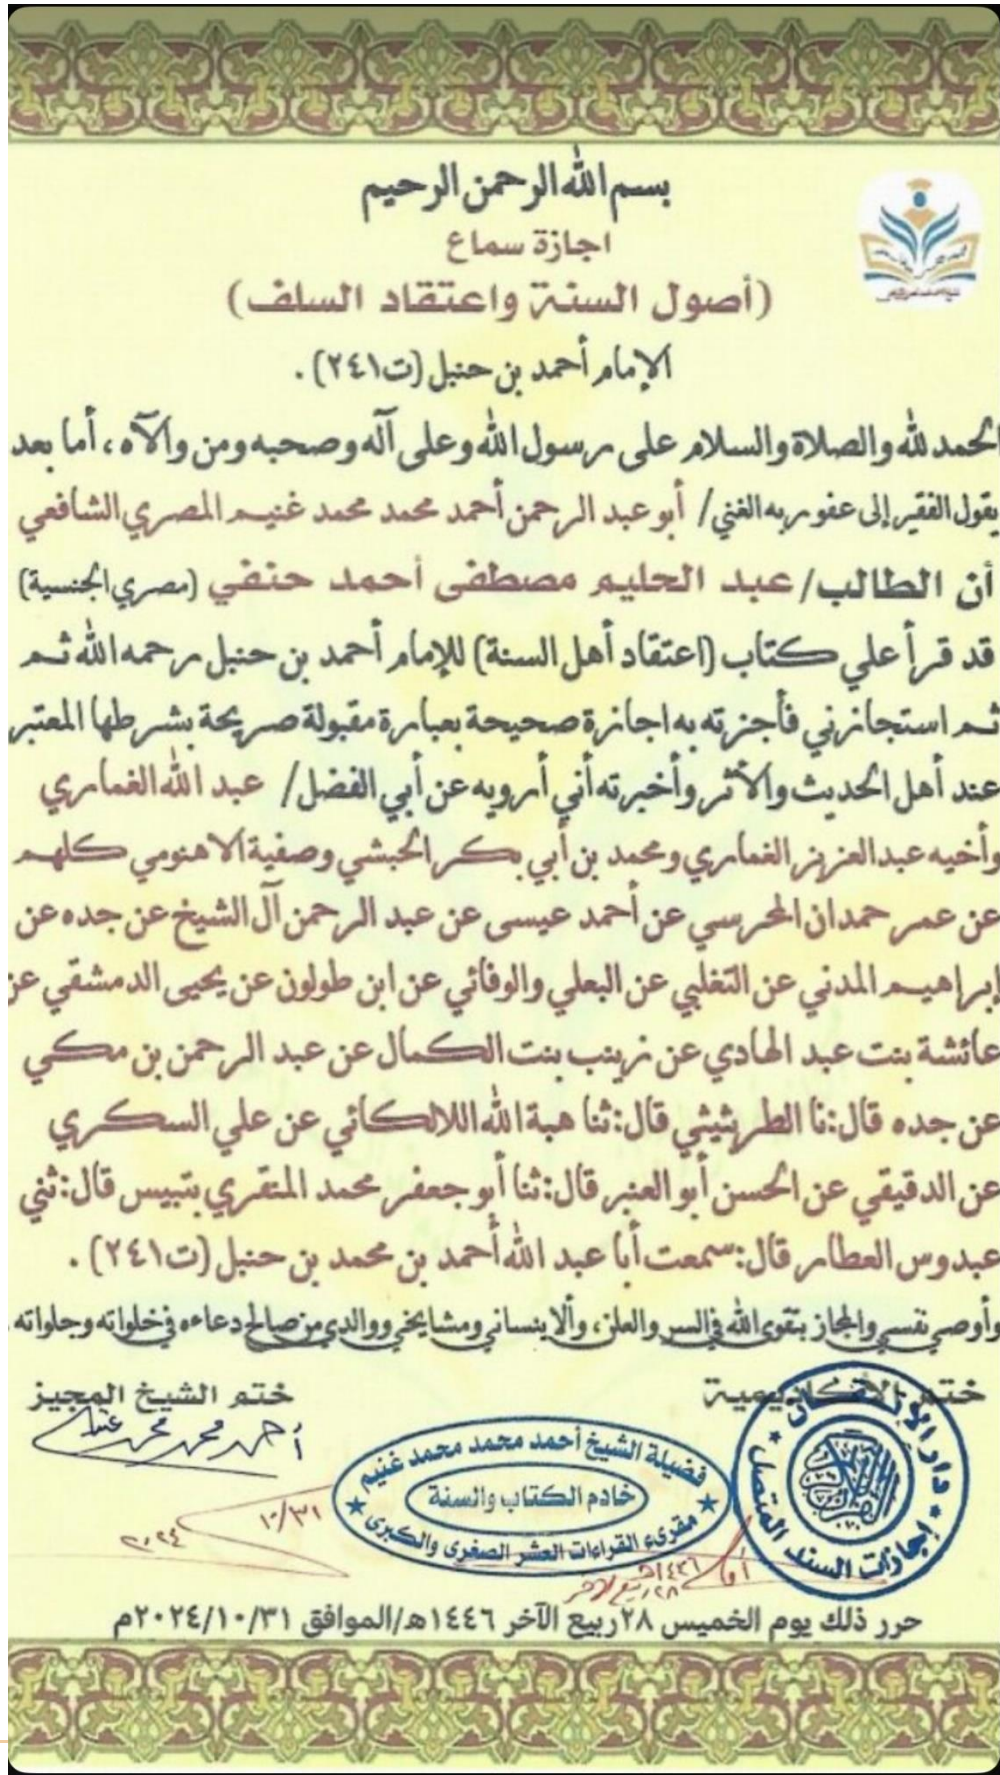 بسم الله الرحمن الرحيم
اجازة سماع
(أصول السنة واعتقاد السلف)
الإمام أحمد بن حنبل (ت٢٤١) .
الحمد لله والصلاة والسلام على رسول الله وعلى آله وصحبه ومن والآه ، أما بعد
يقول الفقير إلى عفو ربه الغني/ أبو عبد الرحمن أحمد محمد محمد غنيم المصري الشافعي
أن الطالب/ عبد الحليم مصطفى أحمد حنفي (مصري الجنسية)
قد قرأ علي كتاب (اعتقاد أهل السنة) للإمام أحمد بن حنبل رحمه الله ثم
ثم استجازني فأجزته به اجازة صحيحة بعبارة مقبولة صريحة بشرطها المعتبر
عند أهل الحديث والأثر وأخبرته أني أرويه عن أبي الفضل/ عبد الله الغماري
وأخيه عبدالعزيز الغماري ومحمد بن أبي بكر الحبشي وصفية الاهنومي كلهم
عن عمر حمدان المحرسي عن أحمد عيسى عن عبد الرحمن آل الشيخ عن جده عن
إبراهيم المدني عن التغلبي عن البعلي والوفائي عن ابن طولون عن يحيى الدمشقي عن
عائشة بنت عبد الهادي عن زينب بنت الكمال عن عبد الرحمن بن مكي
عن جده قال:نا الطريثيثي قال:ثنا هبة الله اللالكائي عن علي السكري
عن الدقيقي عن الحسن أبو العنبر قال:ثنا أبو جعفر محمد المنقري بتبيس قال:ثني
عبدوس العطار قال:سمعت أبا عبد الله أحمد بن محمد بن حنبل (ت٢٤١) .
وأوصي نفسي والمجاز بتقوى الله في السر والعلن، وألا ينساني ومشايخي ووالدي من صالح دعاءه في خلواته وجلواته .
ختم الأكاديمية
ختم الشيخ المجيز
أحمد محمد محمد غنيم
دار الإتقان
إجازات السند المتصل
القرآن الكريم
فضيلة الشيخ أحمد محمد محمد غنيم
خادم الكتاب والسنة
مقرىء القراءات العشر الصغرى والكبرى
١٠/٣١
٢٠٢٤
٢٨ ربيع الآخر
حرر ذلك يوم الخميس ٢٨ربيع الآخر ١٤٤٦هـ/الموافق ٢٠٢٤/١٠/٣١م